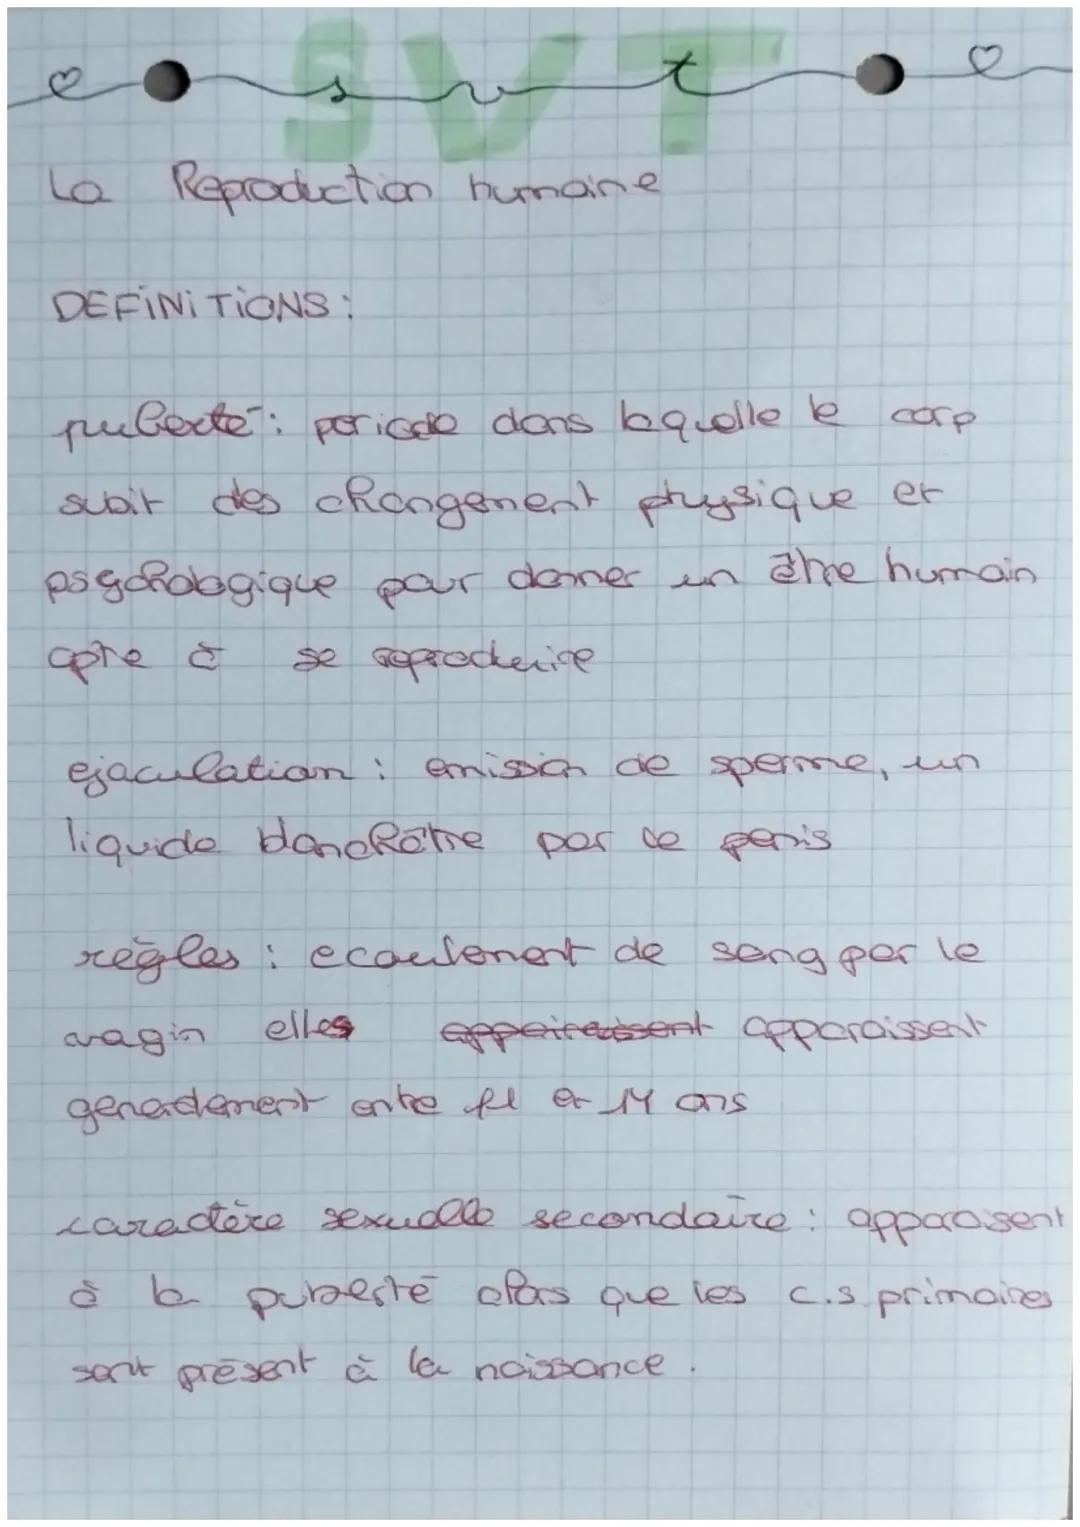 SVT
svt
La Reproduction humaine
DEFINITIONS:
puberté: periode dans laquelle le corp
subit des changement physique et
psychologique pour donner un être humain
apte à se reproduire
ejaculation: emission de sperme, un
liquide blanchâtre par le penis
règles: ecoulement de sang par le
vagin elles apparaissent
generalement entre 11 et 14 ans
caractère sexuelle secondaire: apparaisent
à la puberté alors que les c.s primaires
sont présent à la naissance.